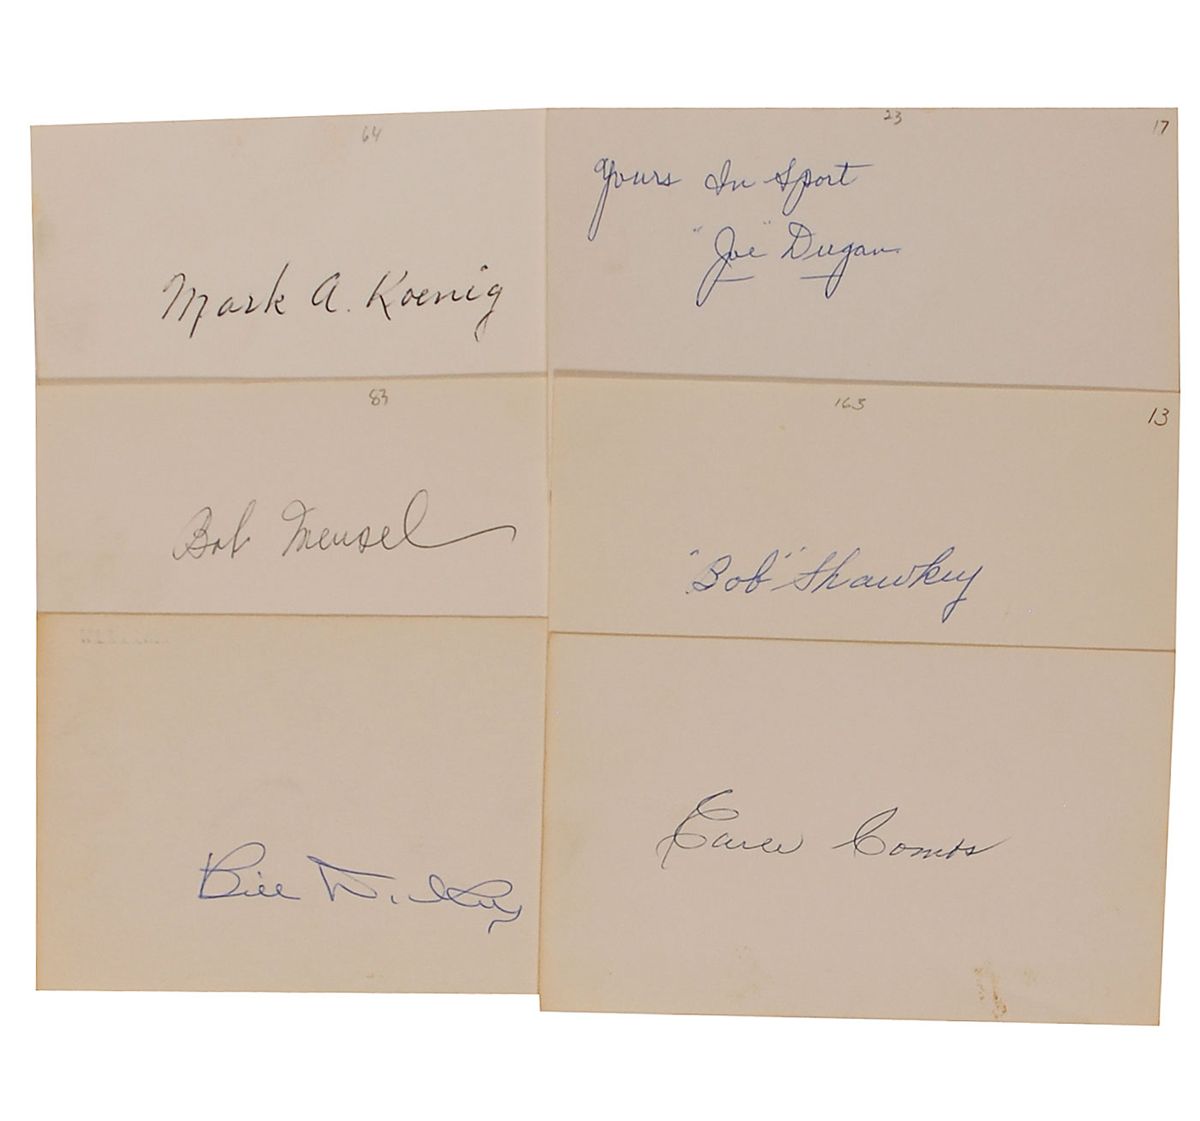 64
Mark A. Koenig
23
17
Yours In Sport
"Joe" Dugan
83
Bob Meusel
163
13
"Bob" Shawkey
Bill Dickey
Earle Combs